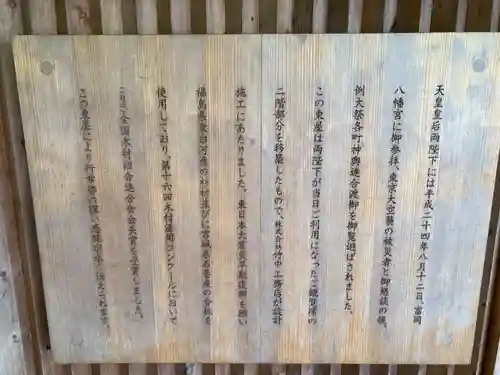 天皇皇后両陛下には平成二十四年八月十二日、富岡
八幡宮に御参拝、東京大空襲の被災者と御懇談の後、
例大祭各町神輿連合渡御を御覧遊ばされました。
この東屋は両陛下が当日ご利用になったご観覧席の
二階部分を移築したもので、株式会社竹中工務店が設計
施工にあたりました。東日本大震災早期復興を願い
福島県東白河産の杉材並びに宮城県石巻産の合板を
使用しており、第十六回木材活用コンクールにおいて
全国木材組合連合会会長賞を受賞しました。
この東屋により行幸啓の
伝えされます。